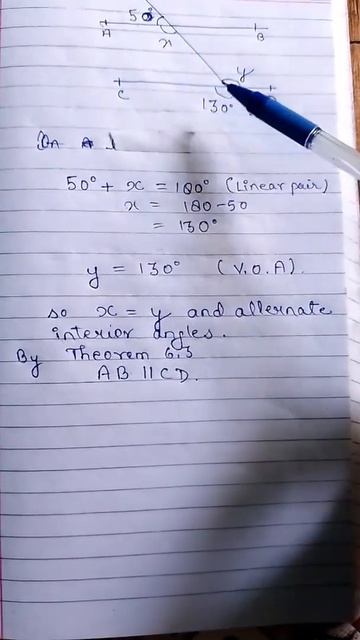 50°
A
x
B
y
C
130°
On
50° + x = 180° (Linear pair)
x = 180-50
= 130°
y = 130° (V.O.A).
so x = y and alternate
interior angles.
By Theorem 6.3
AB || CD.